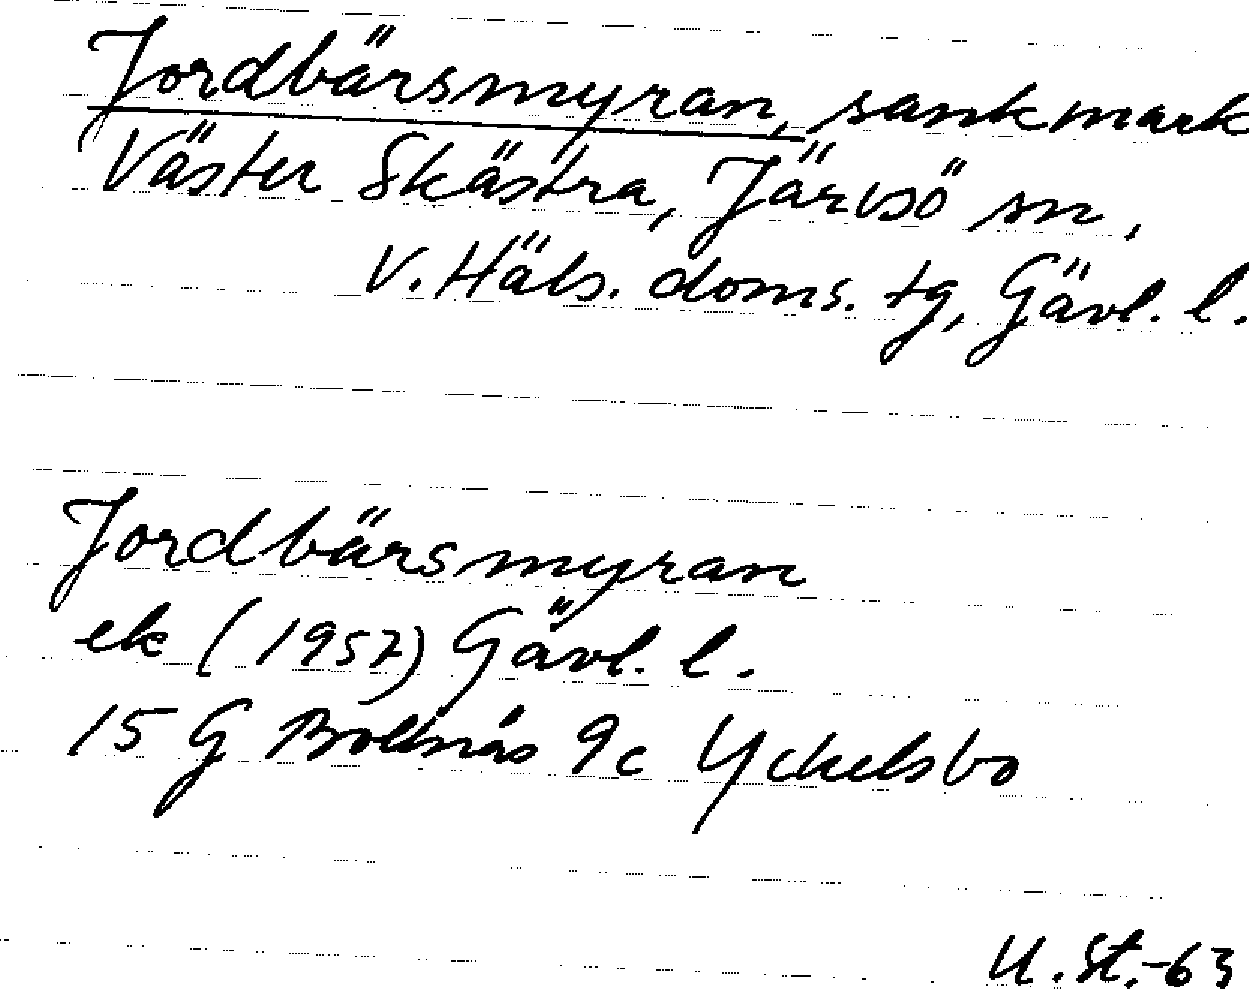 Jordbärsmyran, sankmark
Väster Skästra, Järvsö sn,
V. Häls. doms. tg, Gävl. l.
Jordbärsmyran
ek (1957) Gävl. l.
15 G Bollnäs 9c Yckelsbo
U. St.-63